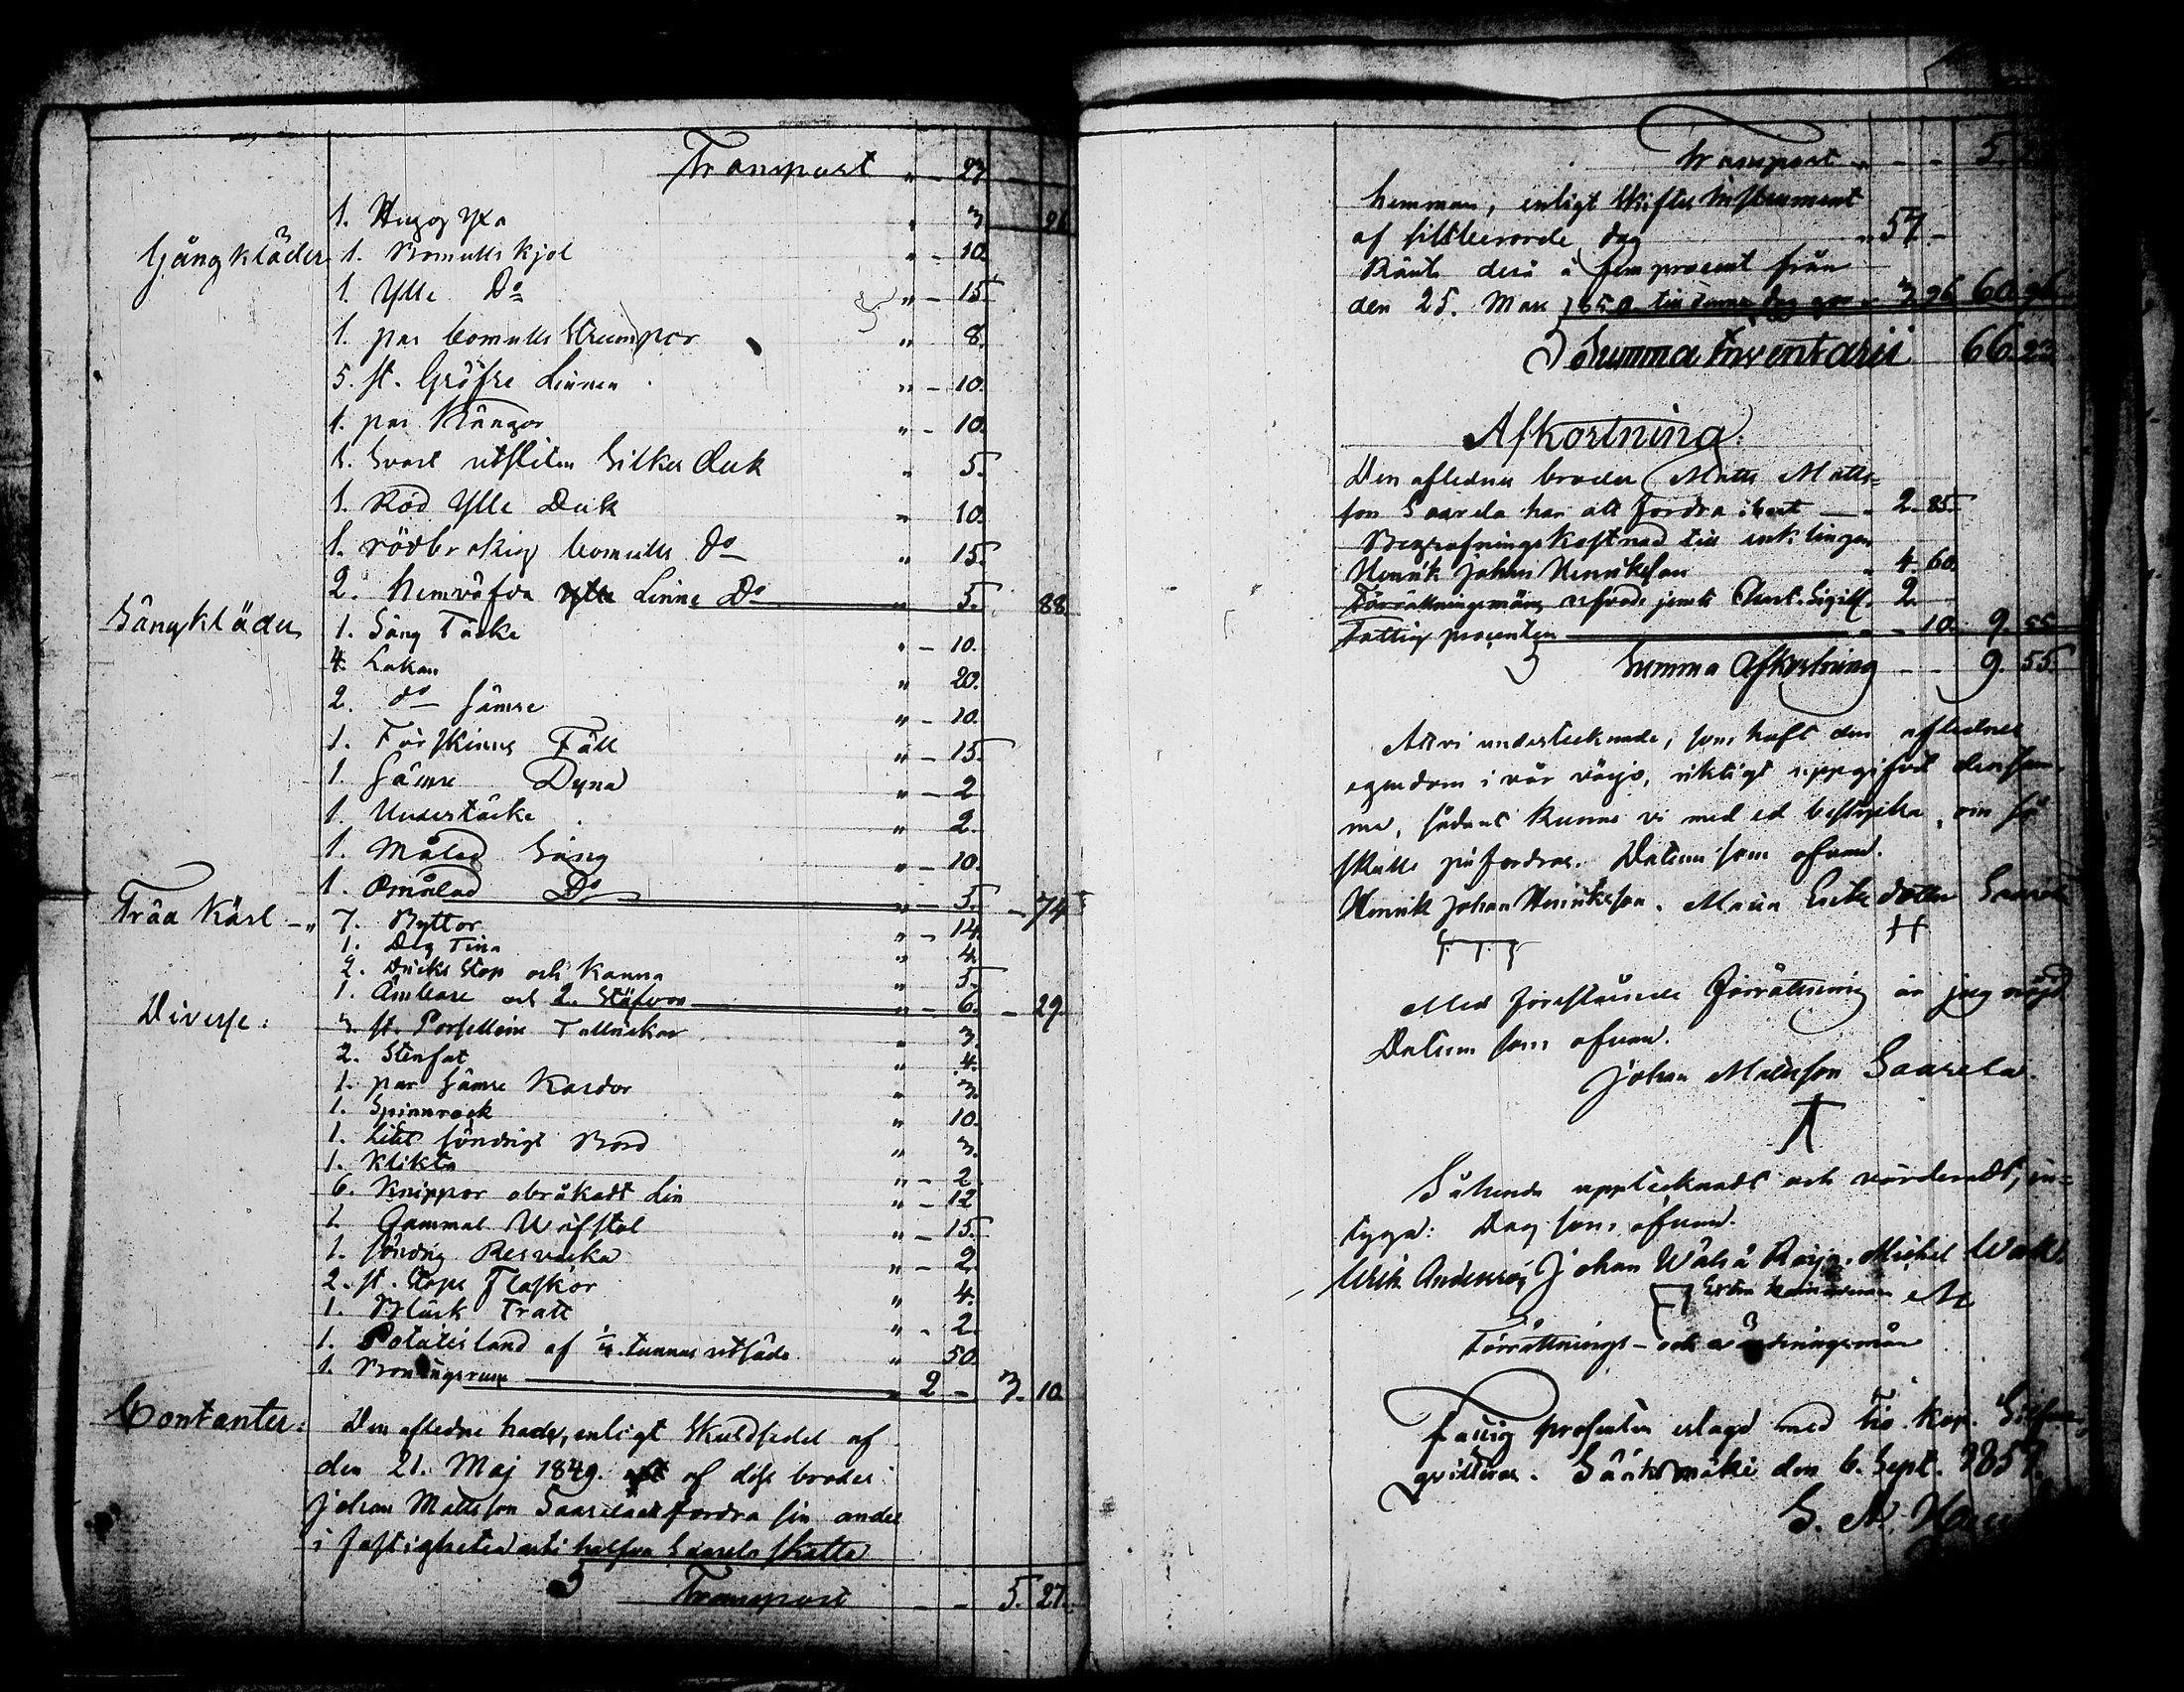 Transport " - 23
1. Hugg Yxa " 3. 26
Gångkläder 1. Bomulls kjol " - 10.
1. Ylle Do " - 15
1. par bomulls Strumpor " 8.
5. st. Gröfre Linnen " - 10.
1. par Kängor " - 10.
1. Svart utsliten Silkes duk " 5.
1. Röd Ylle Duk " 10.
1. rödbrokig bomulls do " 15.
2. hemväfda Linne Do " 5. 88
Sängkläder 1. Säng Täcke " - 10.
4. Lakan " 20.
2. do sämre " - 10.
1. Fårskinns Fäll " - 15
1. sämre Dyna " - 2
1. Undertäcke " 2.
1. Målad Säng " - 10.
1. Omålad Do " - 5. - 74
Träa Kärl - " 7. Byttor " - 14.
1. Deg Tina " 4.
2. Dricks Stop och Kanna " 5
1. Ämbare och 2. Stäfvor " - 6. - 29.
Diverse: 3. st. Porsellins Tallrickar " 3.
2. Stenfat " 4.
1. par sämre Kardor " 3.
1. Spinnrock " 10.
1. Litet söndrigt Bord " 3.
1. Klikta " - 2
6. Knippor obråkadt Lin " - 12
1. Gammal Wäfstol " - 15.
1. söndrig Resväska " - 2.
2. st. Stops Flaskor " 4.
1. Bläck Tratt " - 2.
1. Potatisland af 1/4 tunnas utsäde " 50.
1. Boningsrum " 2 - 3. 10.
Contanter: Den aflidne hade, enligt Skuldsedel af
den 21. Maj 1849. af dess broder
Johan Mattsson Saarela att fordra sin andel
i fastigheten uti halfva Saarela skatte
Transport - - 5. 27.
Transport " - - 5.
hemman, enligt Skiftes Instrument
af sistberörde dag " 57. -
Ränta derå à fem procent från
den 25. Maii 1850 till denna dag " 3 96 60. 96.
Summa Inventarii 66. 23
Afkortning:
Den aflednes broder Matts Matts=
son Saarela har att fordra - 2. 85.
Begrafningskostnad till enklingen
Henrik Johan Henriksson " 4. 60.
Förrättningsmäns arfvode jemte Chart. Sigill. 2.
Fattig procenten - - 10. 9. 55
Summa Afkortning - - 9. 55.
Att vi undertecknade, som haft den aflednes
egendom i vår värjo, riktigt uppgifvit densam-
ma, sådant kunna vi med ed bestyrka, om så
skulle påfordras. Datum som ofvan.
Henrik Johan Henriksson. Maria Eriks dotter Saarela
Med förestående Förrättning är jag nöjd.
Datum som ofvan.
Johan Mattsson Saarela.
Sålunda upptecknadt och värderadt, in=
tyga: Dag som ofvan.
Johan Michel
Förrättnings- och värderingsmän
Fattig procenten erlagd med tio kop. Silfver
qvitteras. Sääksmäki den 6. Sept. 1851.